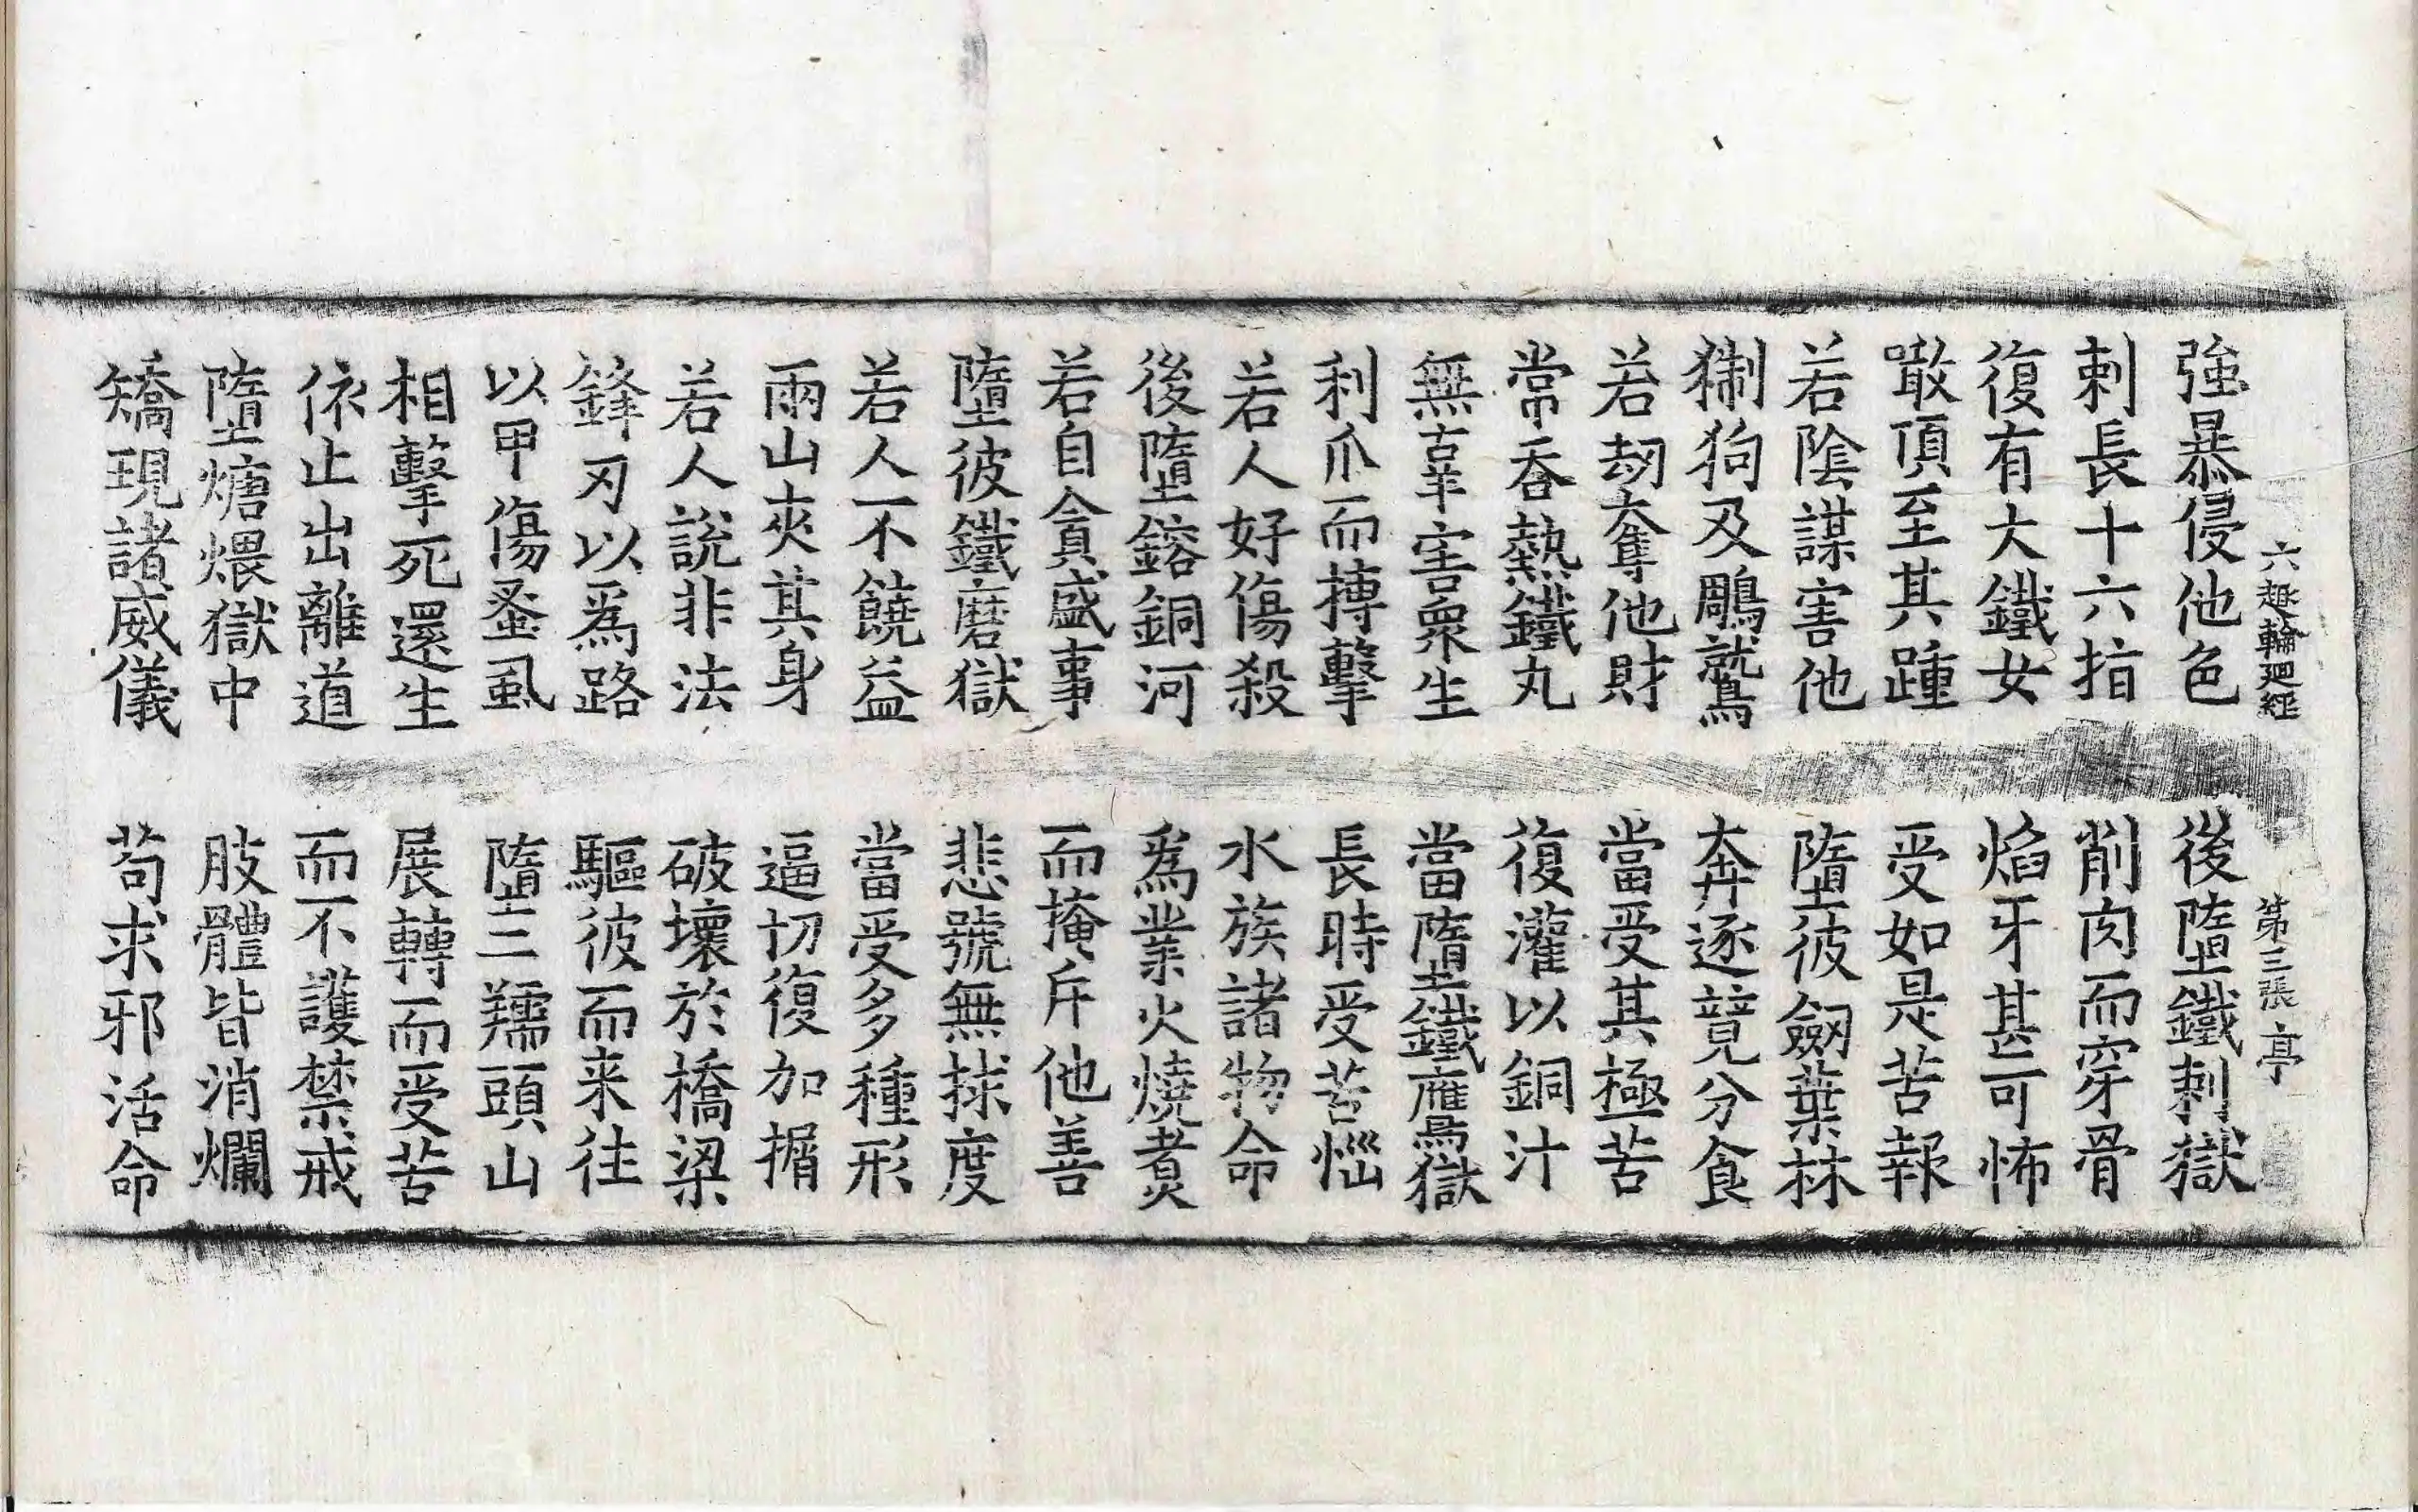 六趣輪廻經 第三張 亭
強暴侵他色 後墮鐵刺獄
刺長十六指 削肉而穿骨
復有大鐵女 焰牙甚可怖
噉頂至其踵 受如是苦報
若陰謀害他 墮彼劒葉林
猘狗及鵰鷲 奔逐競分食
若刧奪他財 當受其極苦
常吞熱鐵丸 復灌以銅汁
無辜害衆生 當墮鐵鷹獄
利爪而摶擊 長時受苦惱
若人好傷殺 水族諸物命
後墮鎔銅河 爲業火燒煮
若自貪盛事 而掩斥他善
墮彼鐵磨獄 悲號無捄度
若人不饒益 當受多種形
兩山夾其身 逼切復加搚
若人說非法 破壞於橋梁
鋒刃以爲路 驅彼而来往
以甲傷蚤虱 墮三羺頭山
相擊死還生 展轉而受苦
依止出離道 而不護禁戒
墮煻煨獄中 肢體皆消爛
矯現諸威儀 苟求邪活命